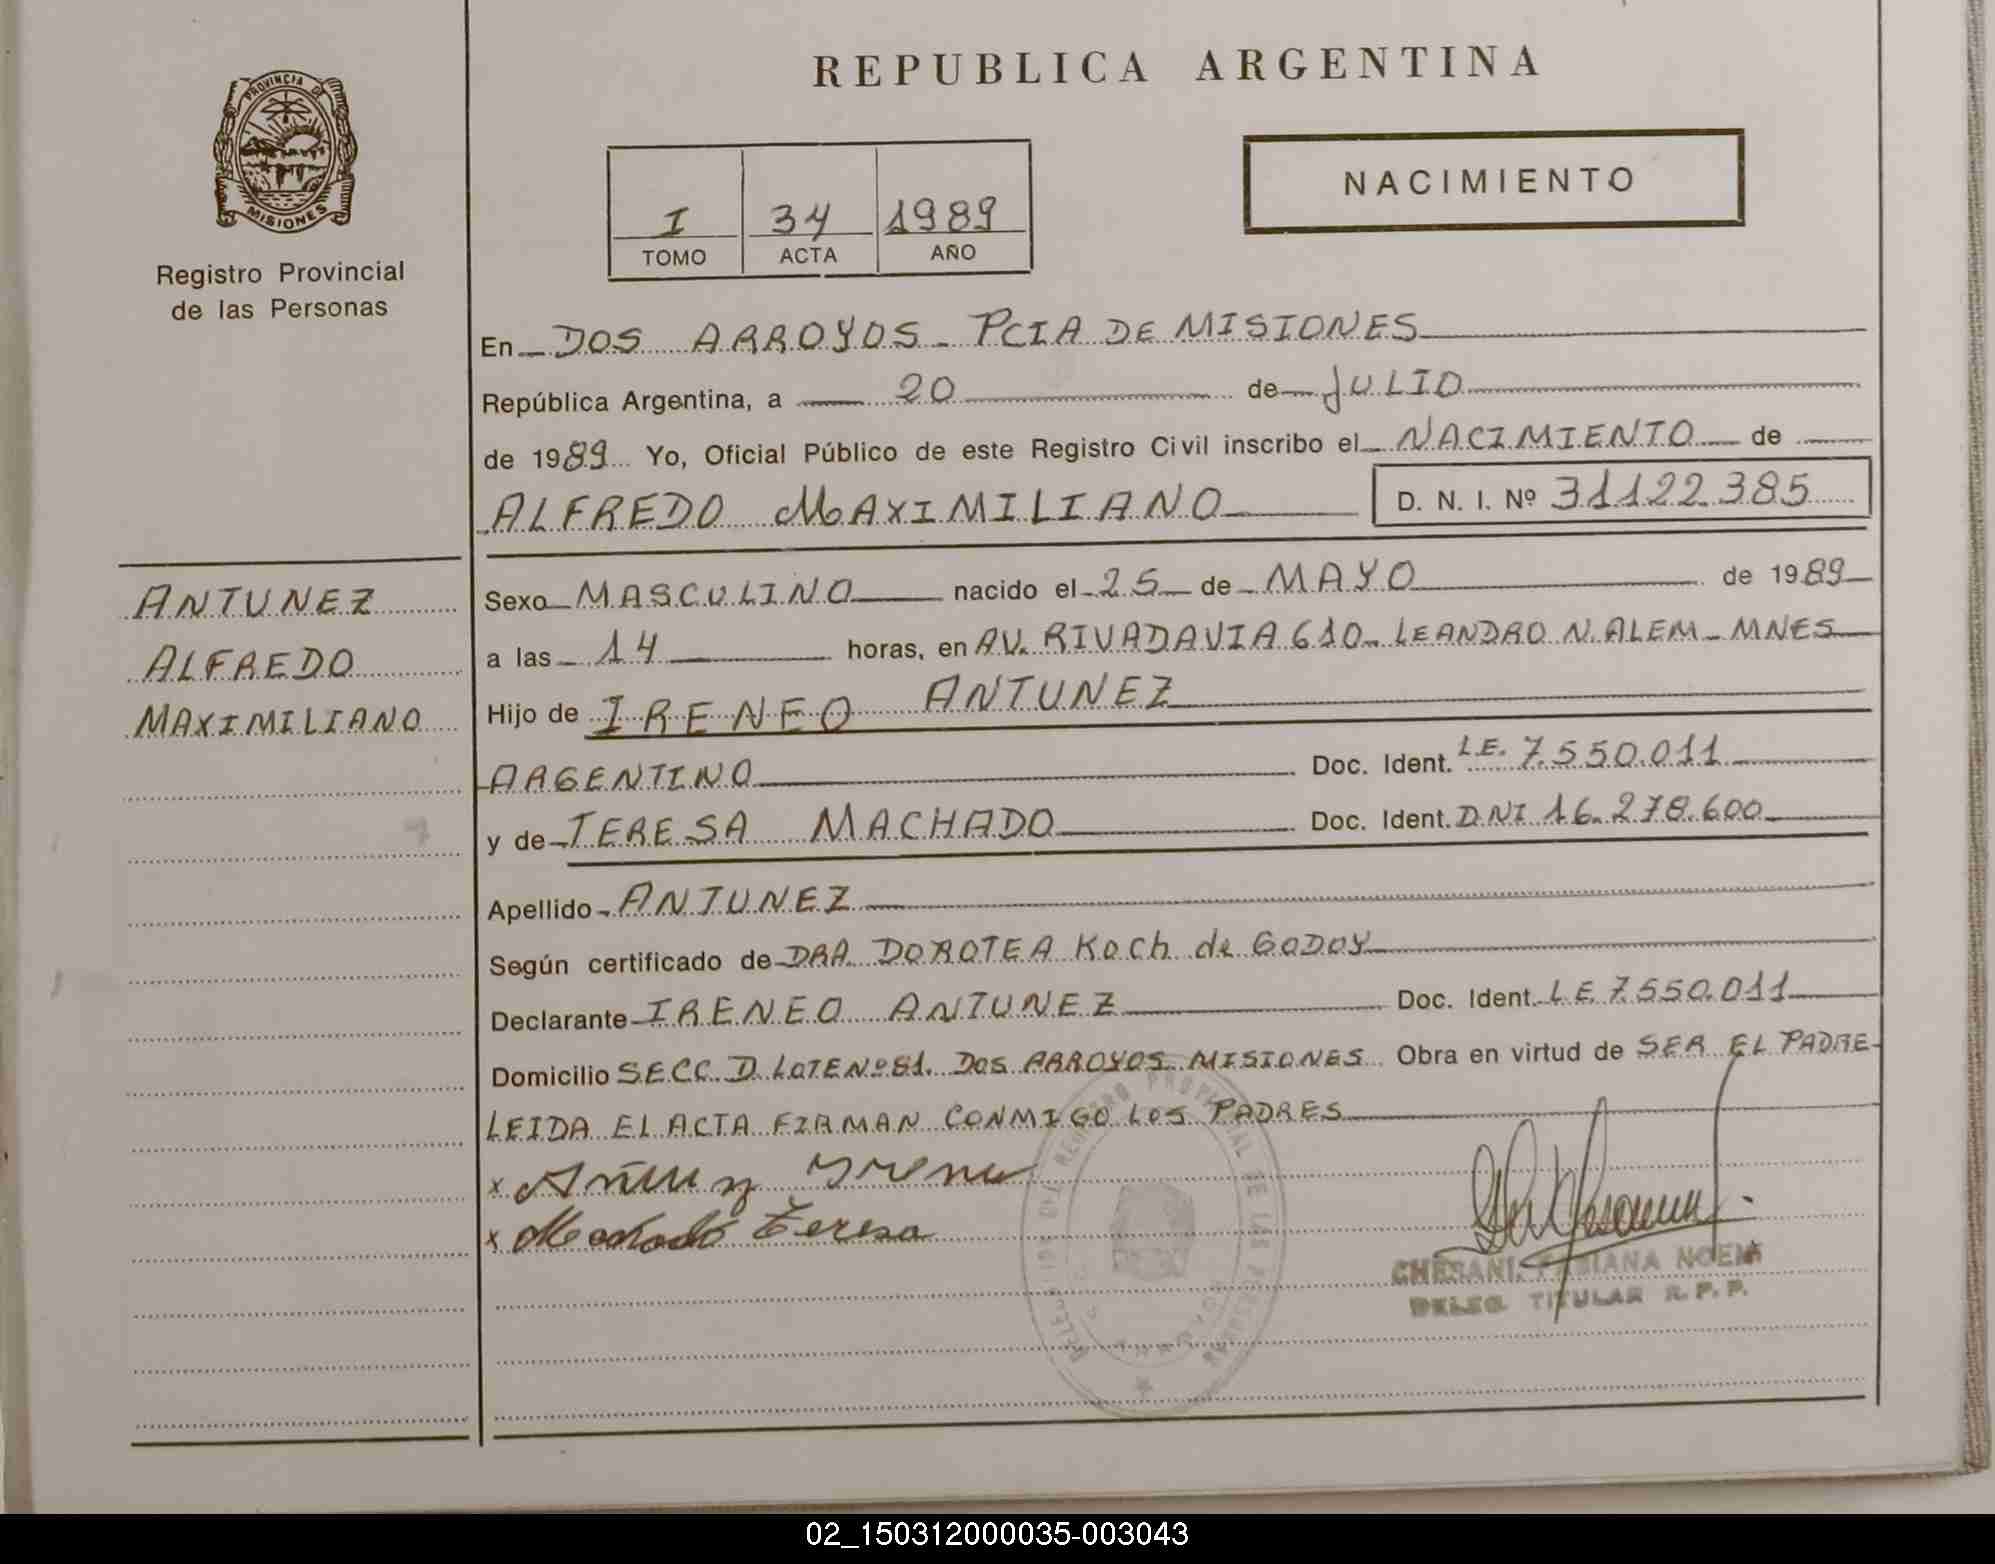 REPUBLICA ARGENTINA
PROVINCIA DE
MISIONES
Registro Provincial
de las Personas
I 34 1989
TOMO ACTA AÑO
NACIMIENTO
En DOS ARROYOS - PCIA DE MISIONES
República Argentina, a 20 de JULIO
de 1989 Yo, Oficial Público de este Registro Civil inscribo el NACIMIENTO de
ALFREDO MAXIMILIANO D. N. I. Nº 31122385
ANTUNEZ
ALFREDO
MAXIMILIANO
Sexo MASCULINO nacido el 25 de MAYO de 1989
a las 14 horas, en AV. RIVADAVIA 610- LEANDRO N. ALEM - MNES
Hijo de IRENEO ANTUNEZ
ARGENTINO Doc. Ident. L.E. 7.550.011
y de TERESA MACHADO Doc. Ident. DNI 16.278.600
Apellido ANTUNEZ
Según certificado de DRA. DOROTEA KOCH de GODOY
Declarante IRENEO ANTUNEZ Doc. Ident. L.E. 7.550.011
Domicilio SECC. D LOTE Nº 81. DOS ARROYOS MISIONES Obra en virtud de SER EL PADRE
LEIDA EL ACTA FIRMAN CONMIGO LOS PADRES
x Antunez Ireneo
x Machado Teresa
FABIANA NOEMI
DELEG. TITULAR R. P. P.
02_150312000035-003043